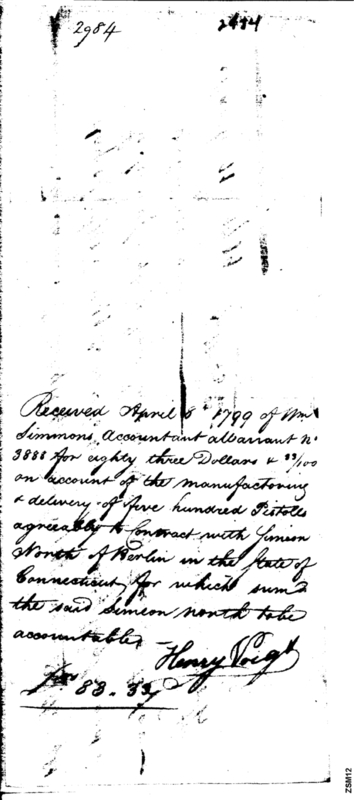 2984
2984
Received April 8th 1799 of Wm
Simmons, Accountant a Warrant No
3888 for eighty three Dollars & 33/100
on account of the manufactoring
& delivery of five hundred Pistolls
agreeably to Contract with Simeon
North of Berlin in the State of
Connecticut, for which sum
the said Simeon north to be
accountable,
Henry Voigt
83.33
ZSM12